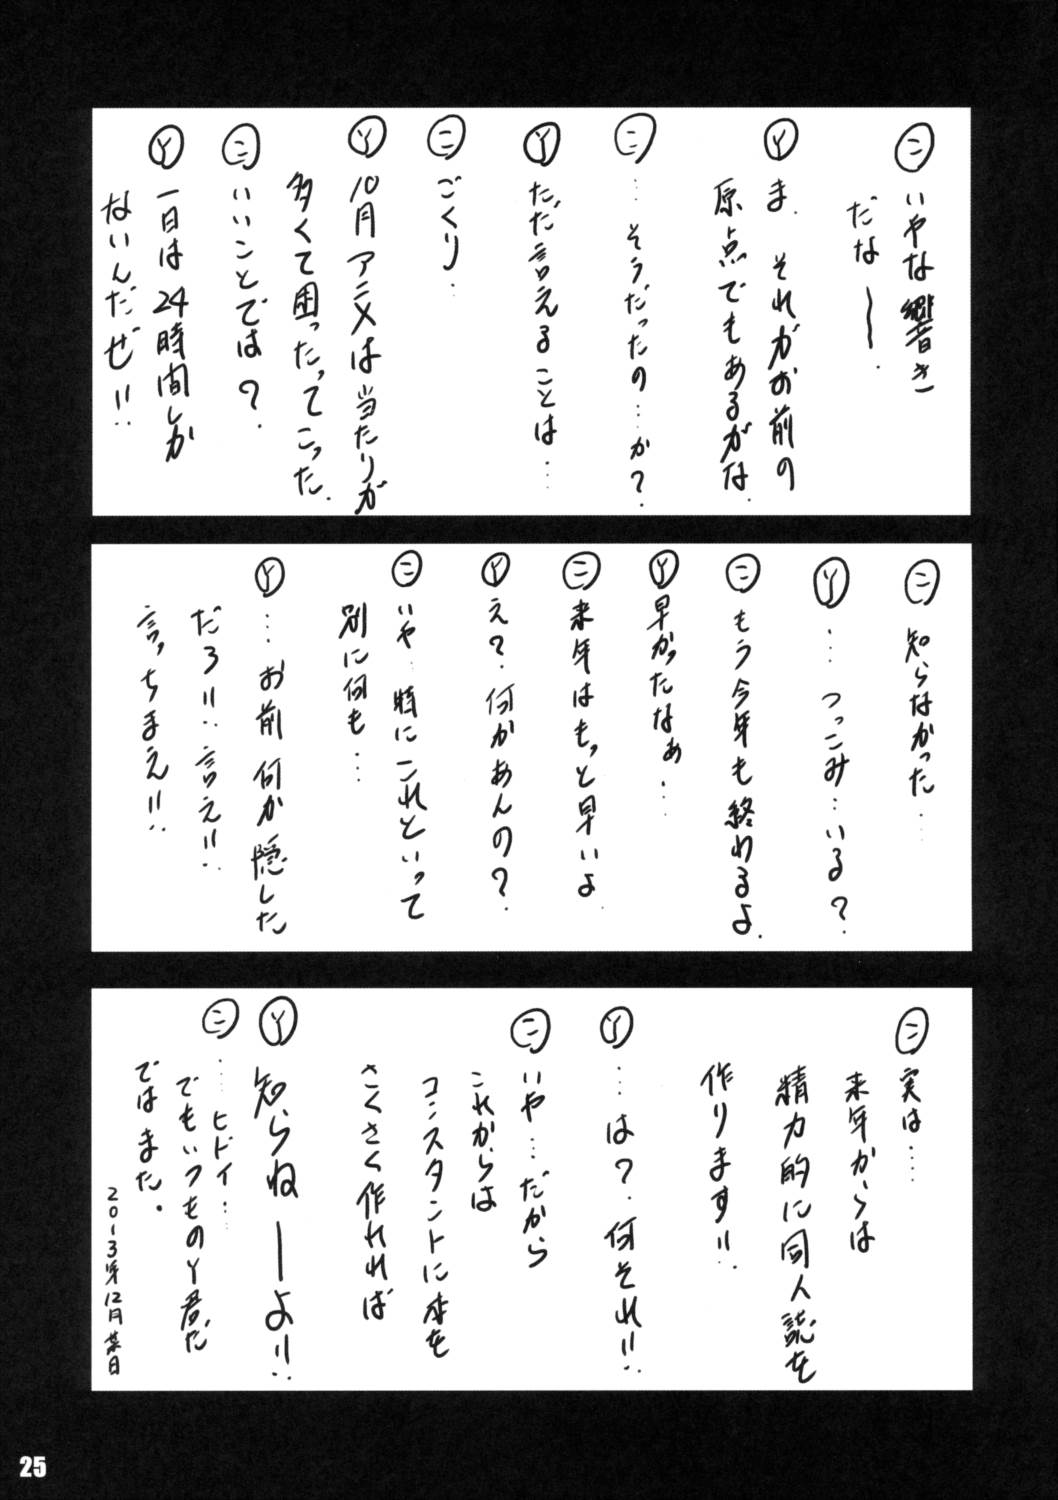 ㋥ いやな響き
だなーー.
Ⓨ ま. それがお前の
原点でもあるがな.
㋥ …そうだったの…か?.
Ⓨ ただ言えることは…
㋥ ごくり…
Ⓨ 10月アニメは当たりが
多くて困ったってこった.
㋥ いいことでは?.
Ⓨ 一日は24時間しか
ないんだぜ!!.
㋥ 知らなかった…
Ⓨ …つっこみ…いる?.
㋥ もう今年も終わるよ.
Ⓨ 早かったなぁ…
㋥ 来年はもっと早いよ
Ⓨ え?.何かあんの?.
㋥ いや…時にこれといって
別に何も…
Ⓨ …お前何か隠した
だろ!!.言え!!.
言っちまえ!!.
㋥ 実は…
来年からは
精力的に同人誌を
作ります!!.
Ⓨ …は?.何それ!!.
㋥ いや…だから
これからは
コンスタントに本を
さくさく作れれば
Ⓨ 知らねーよ!!.
㋥ ……ヒドイ…
でもいつものY君だ
ではまた。
2013年12月某日
25